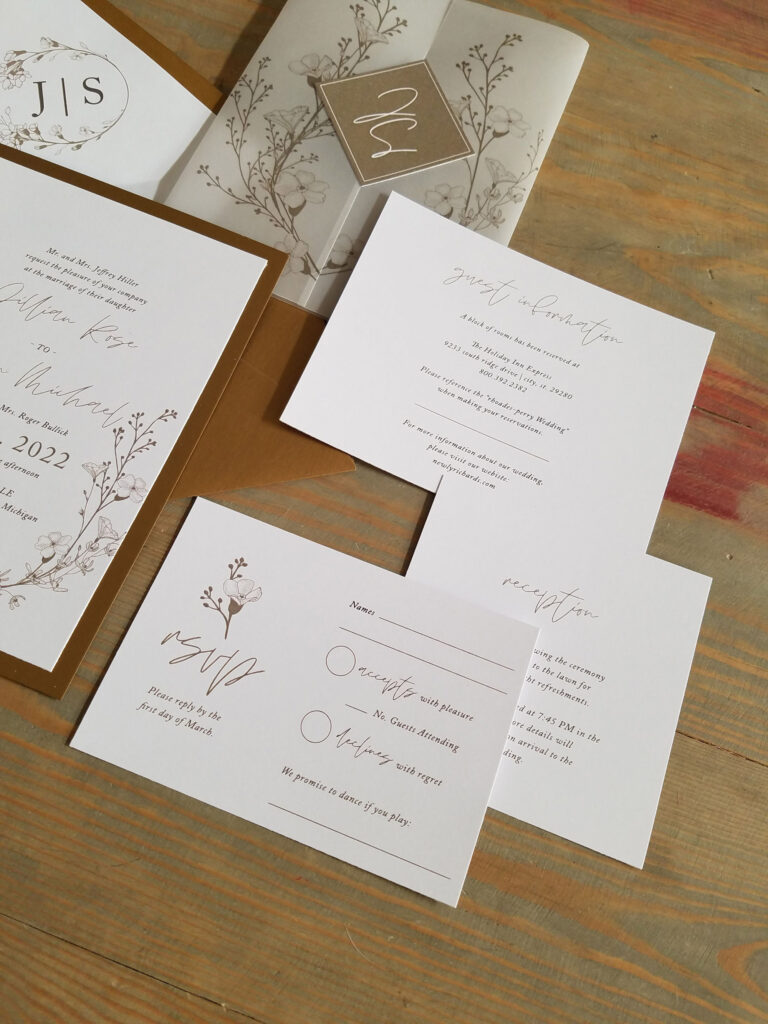 J | S
JS
Mr. and Mrs. Jeffrey Hiller
request the pleasure of your company
at the marriage of their daughter
Jillian Rose
-TO-
Michael
Mrs. Roger Bullick
2022
afternoon
Michigan
guest information
A block of rooms has been reserved at
The Holiday Inn Express
9233 south ridge drive | city, st. 29280
800.392.2382
Please reference the "rhoades-perry Wedding"
when making your reservations.
For more information about our wedding,
please visit our website:
newlyrichards.com
rsvp
Please reply by the
first day of March.
Names
accepts with pleasure
No. Guests Attending
declines with regret
We promise to dance if you play:
reception
wing the ceremony
to the lawn for
ht refreshments.
ed at 7:45 PM in the
ore details will
n arrival to the
ding.